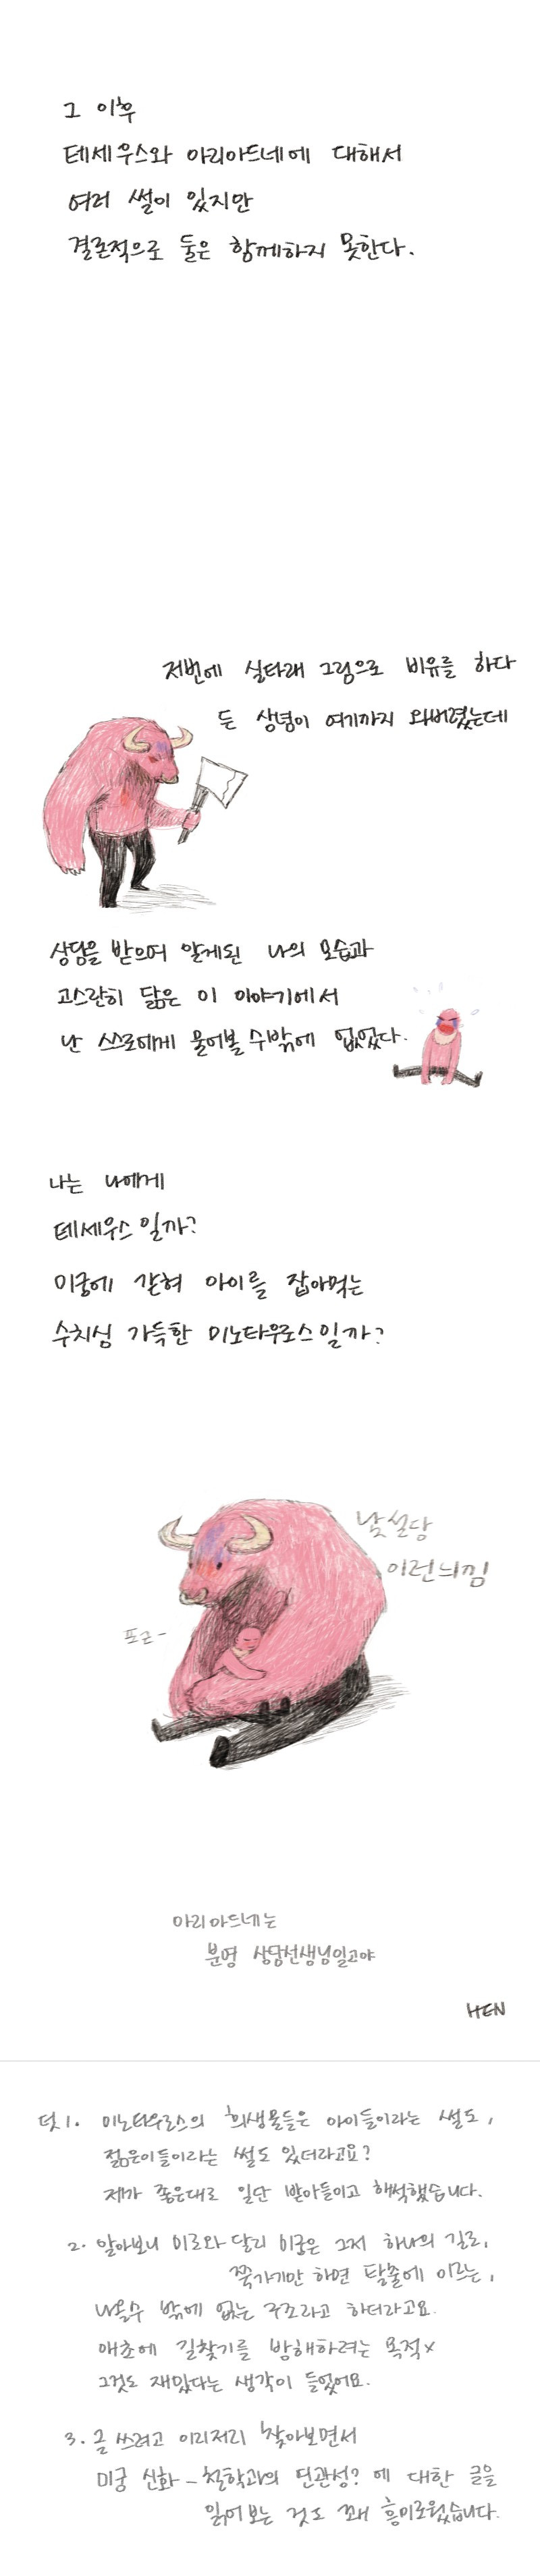 그 이후
테세우스와 아리아드네에 대해서
여러 썰이 있지만
결론적으로 둘은 함께하지 못한다.
저번에 실타래 그림으로 비유를 하다
든 상념이 여기까지 와버렸는데
상담을 받으며 알게된 나의 모습과
고스란히 닮은 이 이야기에서
난 스스로에게 물어볼 수밖에 없었다.
나는 나에게
테세우스일까?
미궁에 갇혀 아이를 잡아먹는
수치심 가득한 미노타우로스일까?
낯설당
이런늬낌
포근-
아리아드네는
분명 상담선생님일고야
HEN
덧1. 미노타우로스의 희생물들은 아이들이라는 썰도,
젊은이들이라는 썰도 있더라고요?
제가 좋은대로 일단 받아들이고 해석했습니다.
2. 알아보니 미로와 달리 미궁은 그저 하나의 길로,
쭉가기만 하면 탈출에 이르는,
나올수 밖에 없는 구조라고 하더라고요.
애초에 길찾기를 방해하려는 목적x
그것도 재밌다는 생각이 들었어요.
3. 글 쓰려고 이리저리 찾아보면서
미궁 신화-철학과의 연관성? 에 대한 글을
읽어보는 것도 꽤 흥미로웠습니다.